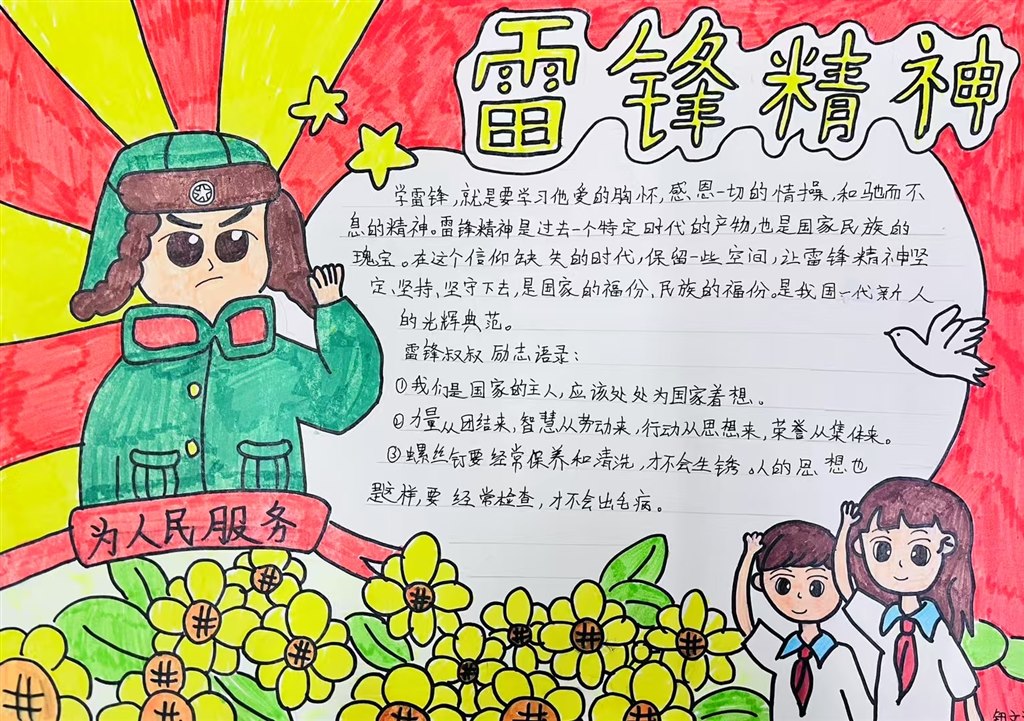 雷锋精神
学雷锋,就是要学习他爱的胸怀,感恩一切的情操,和驰而不
息的精神。雷锋精神是过去一个特定时代的产物,也是国家民族的
瑰宝。在这个信仰缺失的时代,保留一些空间,让雷锋精神坚
定、坚持、坚守下去,是国家的福份、民族的福份。是我国一代新人
的光辉典范。
雷锋叔叔励志语录:
①我们是国家的主人,应该处处为国家着想。
②力量从团结来,智慧从劳动来,行动从思想来,荣誉从集体来。
③螺丝钉要经常保养和清洗,才不会生锈。人的思想也
是这样,要经常检查,才不会出毛病。
为人民服务